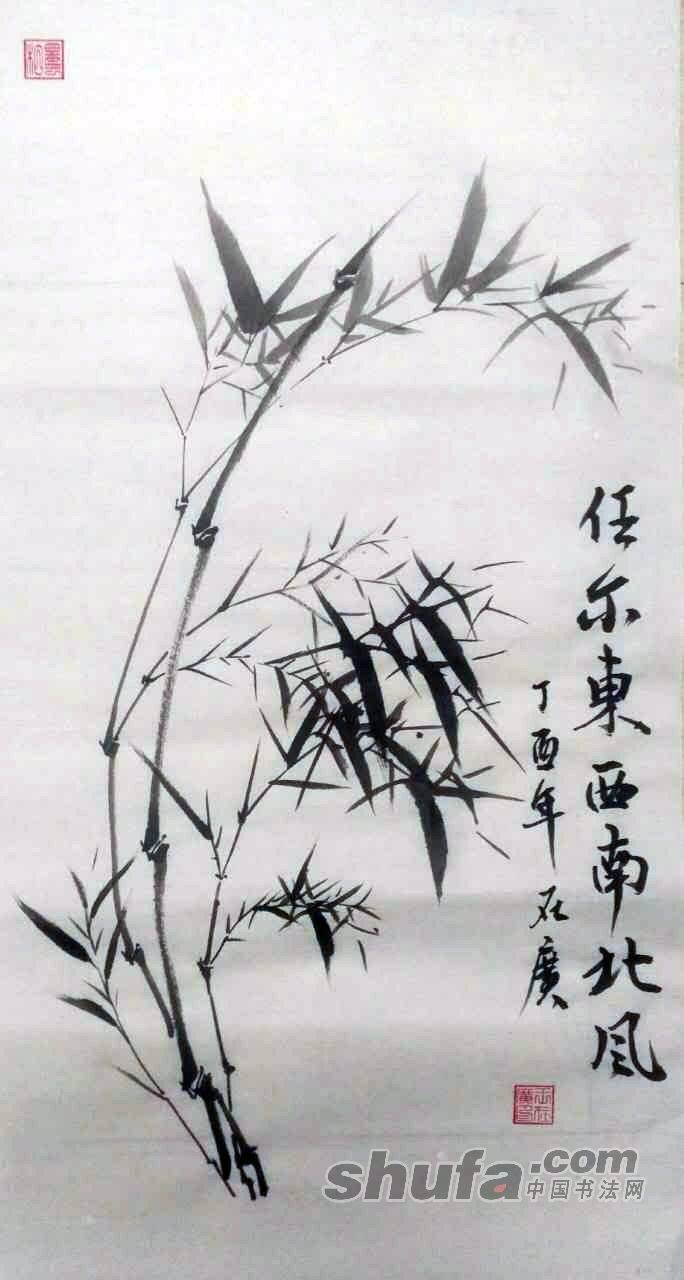 任尔東西南北风
丁酉年 在廣
shufa.com
中国书法网